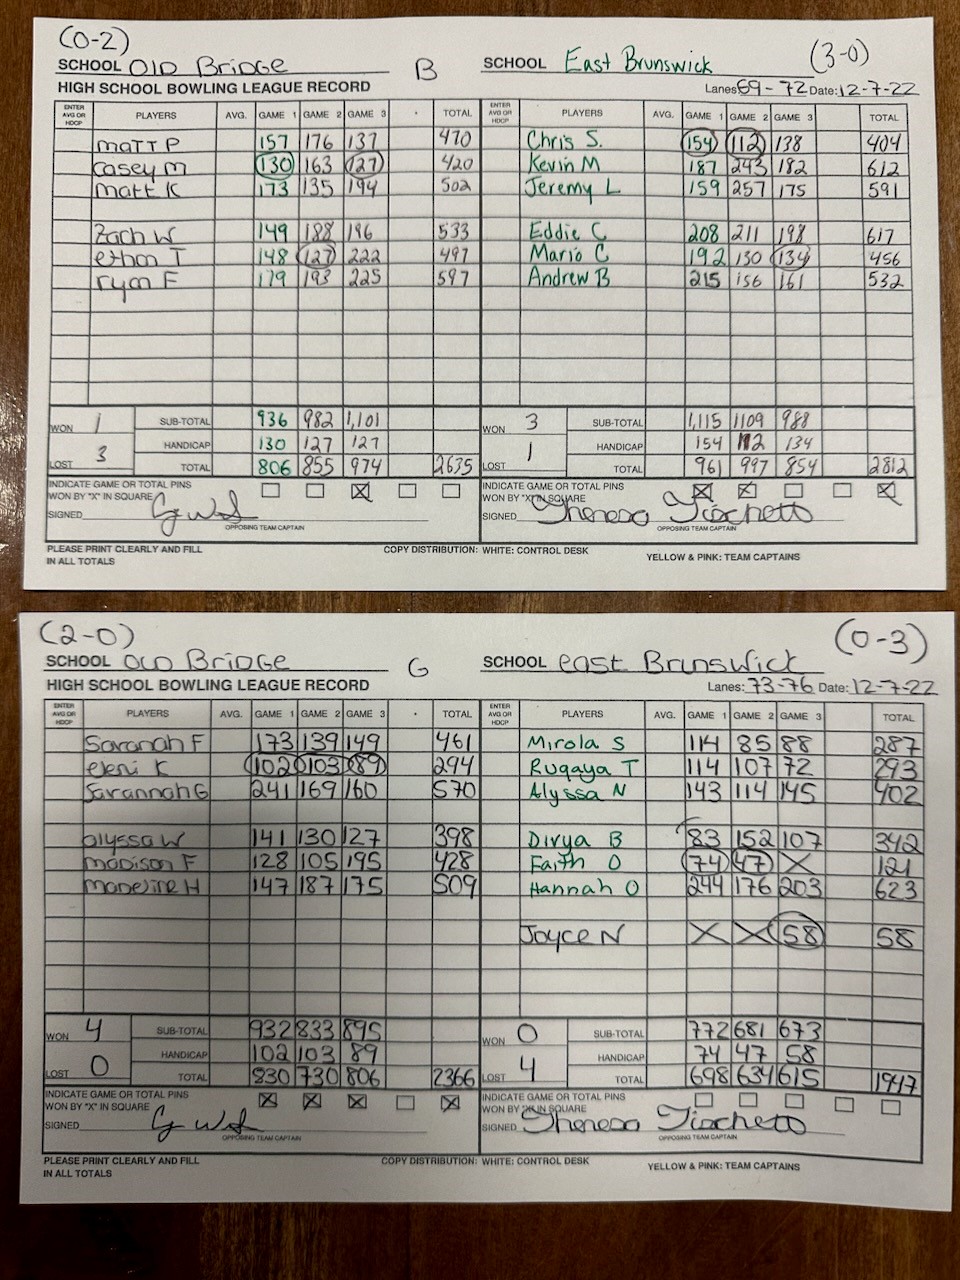 (0-2) (3-0)
SCHOOL Old Bridge B SCHOOL East Brunswick
HIGH SCHOOL BOWLING LEAGUE RECORD Lanes: 69-72 Date: 12-7-22
ENTER AVG OR HDCP PLAYERS AVG. GAME 1 GAME 2 GAME 3 TOTAL ENTER AVG OR HDCP PLAYERS AVG. GAME 1 GAME 2 GAME 3 TOTAL
Matt P 157 176 137 470 Chris S. 154 112 138 404
Casey M 130 163 127 420 Kevin M 187 243 182 612
Matt K 173 135 194 502 Jeremy L 159 257 175 591
Zach W 149 188 196 533 Eddie C 208 211 198 617
Ethan T 148 127 222 497 Mario C 192 130 134 456
Ryan F 179 193 225 597 Andrew B 215 156 161 532
WON 1 SUB-TOTAL 936 982 1,101 WON 3 SUB-TOTAL 1,115 1109 988
HANDICAP 130 127 127 HANDICAP 154 112 134
LOST 3 TOTAL 806 855 974 2635 LOST 1 TOTAL 961 997 854 2812
INDICATE GAME OR TOTAL PINS INDICATE GAME OR TOTAL PINS
WON BY "X" IN SQUARE X WON BY "X" IN SQUARE X X X
SIGNED SIGNED Theresa
OPPOSING TEAM CAPTAIN OPPOSING TEAM CAPTAIN
PLEASE PRINT CLEARLY AND FILL COPY DISTRIBUTION: WHITE: CONTROL DESK YELLOW & PINK: TEAM CAPTAINS
IN ALL TOTALS
(2-0) (0-3)
SCHOOL Old Bridge G SCHOOL East Brunswick
HIGH SCHOOL BOWLING LEAGUE RECORD Lanes: 73-76 Date: 12-7-22
ENTER AVG OR HDCP PLAYERS AVG. GAME 1 GAME 2 GAME 3 TOTAL ENTER AVG OR HDCP PLAYERS AVG. GAME 1 GAME 2 GAME 3 TOTAL
Savanah F 173 139 149 461 Mirola S 114 85 88 287
Eleni K 102 103 89 294 Ruqaya T 114 107 72 293
Savannah G 241 169 160 570 Alyssa N 143 114 145 402
Alyssa W 141 130 127 398 Divya B 83 152 107 342
Madison F 128 105 195 428 Faith O 74 47 X 121
Madeline H 147 187 175 509 Hannah O 244 176 203 623
Joyce N X X 58 58
WON 4 SUB-TOTAL 932 833 895 WON 0 SUB-TOTAL 772 681 673
HANDICAP 102 103 89 HANDICAP 74 47 58
LOST 0 TOTAL 830 730 806 2366 LOST 4 TOTAL 698 634 615 1947
INDICATE GAME OR TOTAL PINS INDICATE GAME OR TOTAL PINS
WON BY "X" IN SQUARE X X X X WON BY "X" IN SQUARE
SIGNED SIGNED Theresa
OPPOSING TEAM CAPTAIN OPPOSING TEAM CAPTAIN
PLEASE PRINT CLEARLY AND FILL COPY DISTRIBUTION: WHITE: CONTROL DESK YELLOW & PINK: TEAM CAPTAINS
IN ALL TOTALS